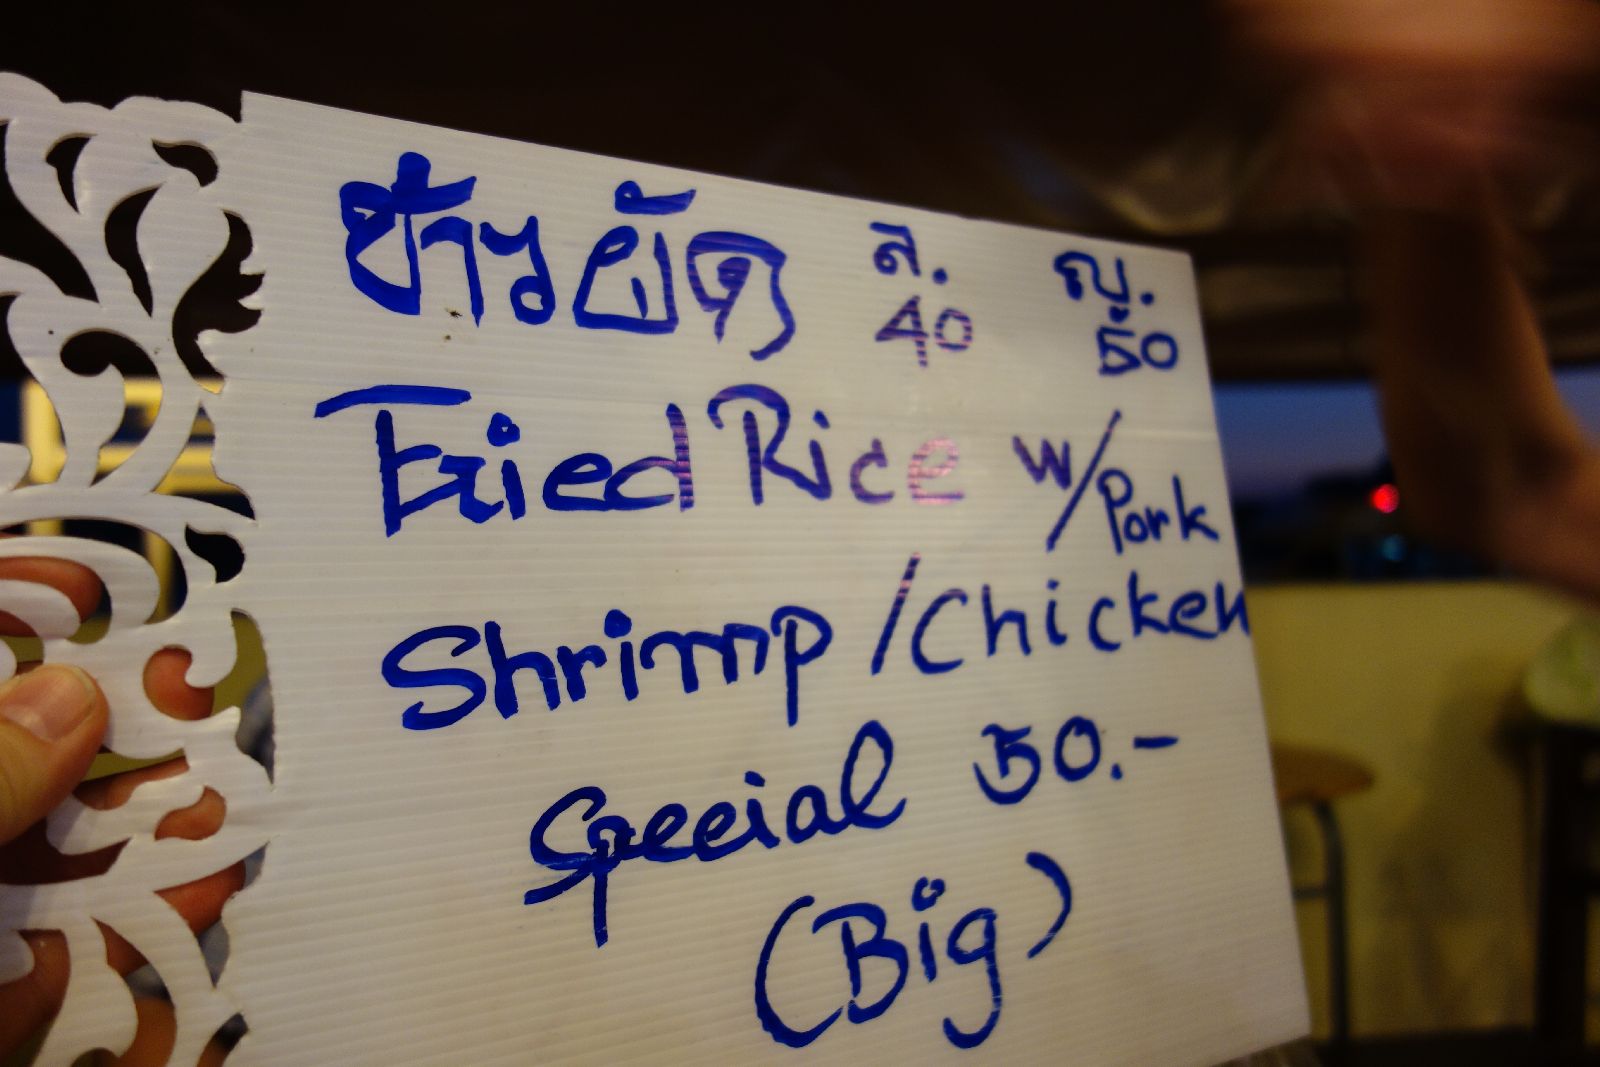 ข้าวผัด ล. ญ.
40 50
Fried Rice w/Pork
Shrimp/Chicken
Special 50.-
(Big)